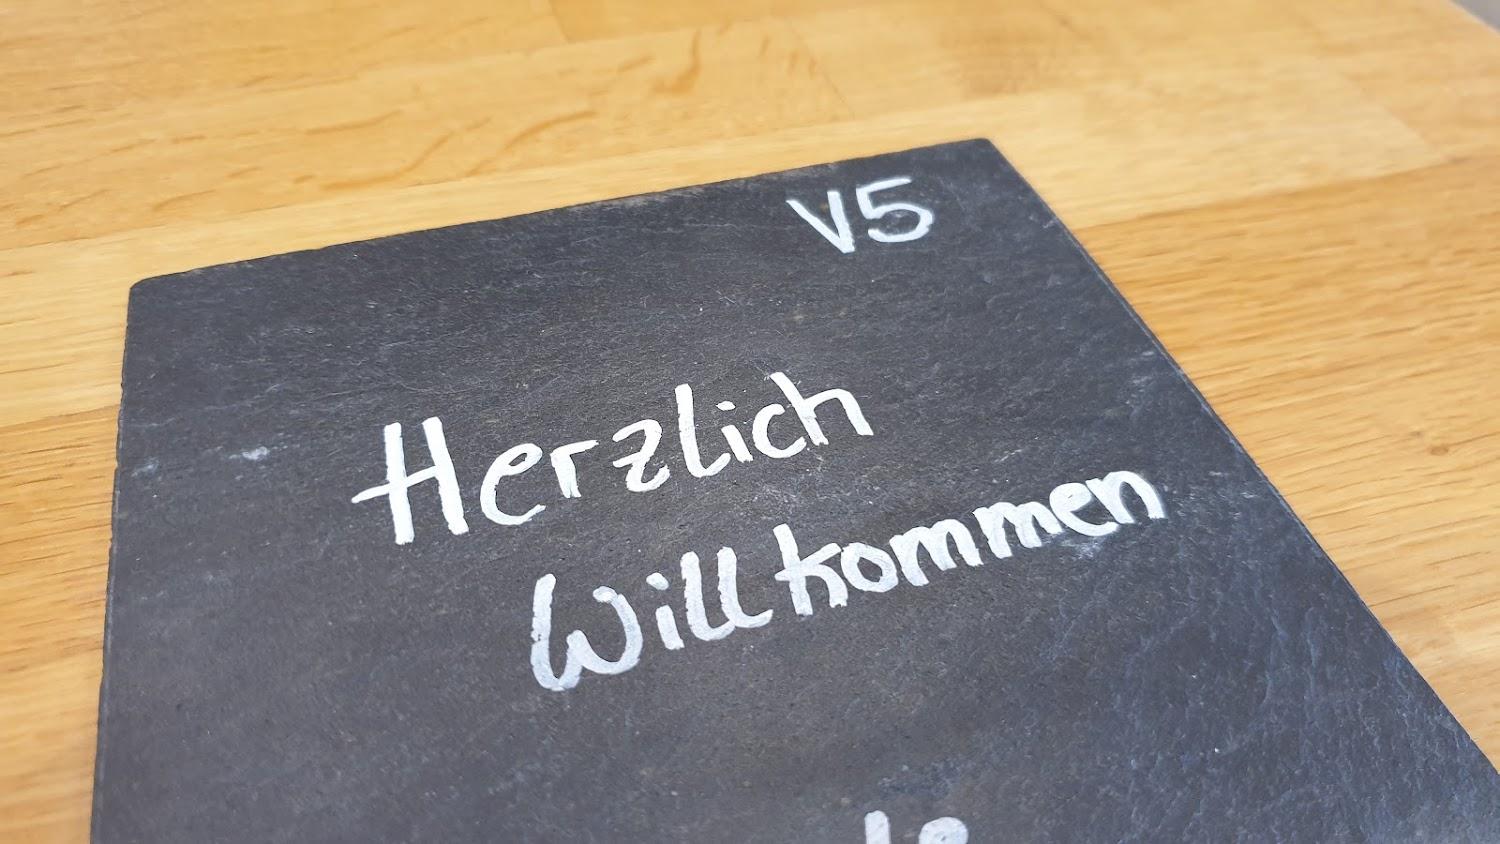 V5
Herzlich
Willkommen